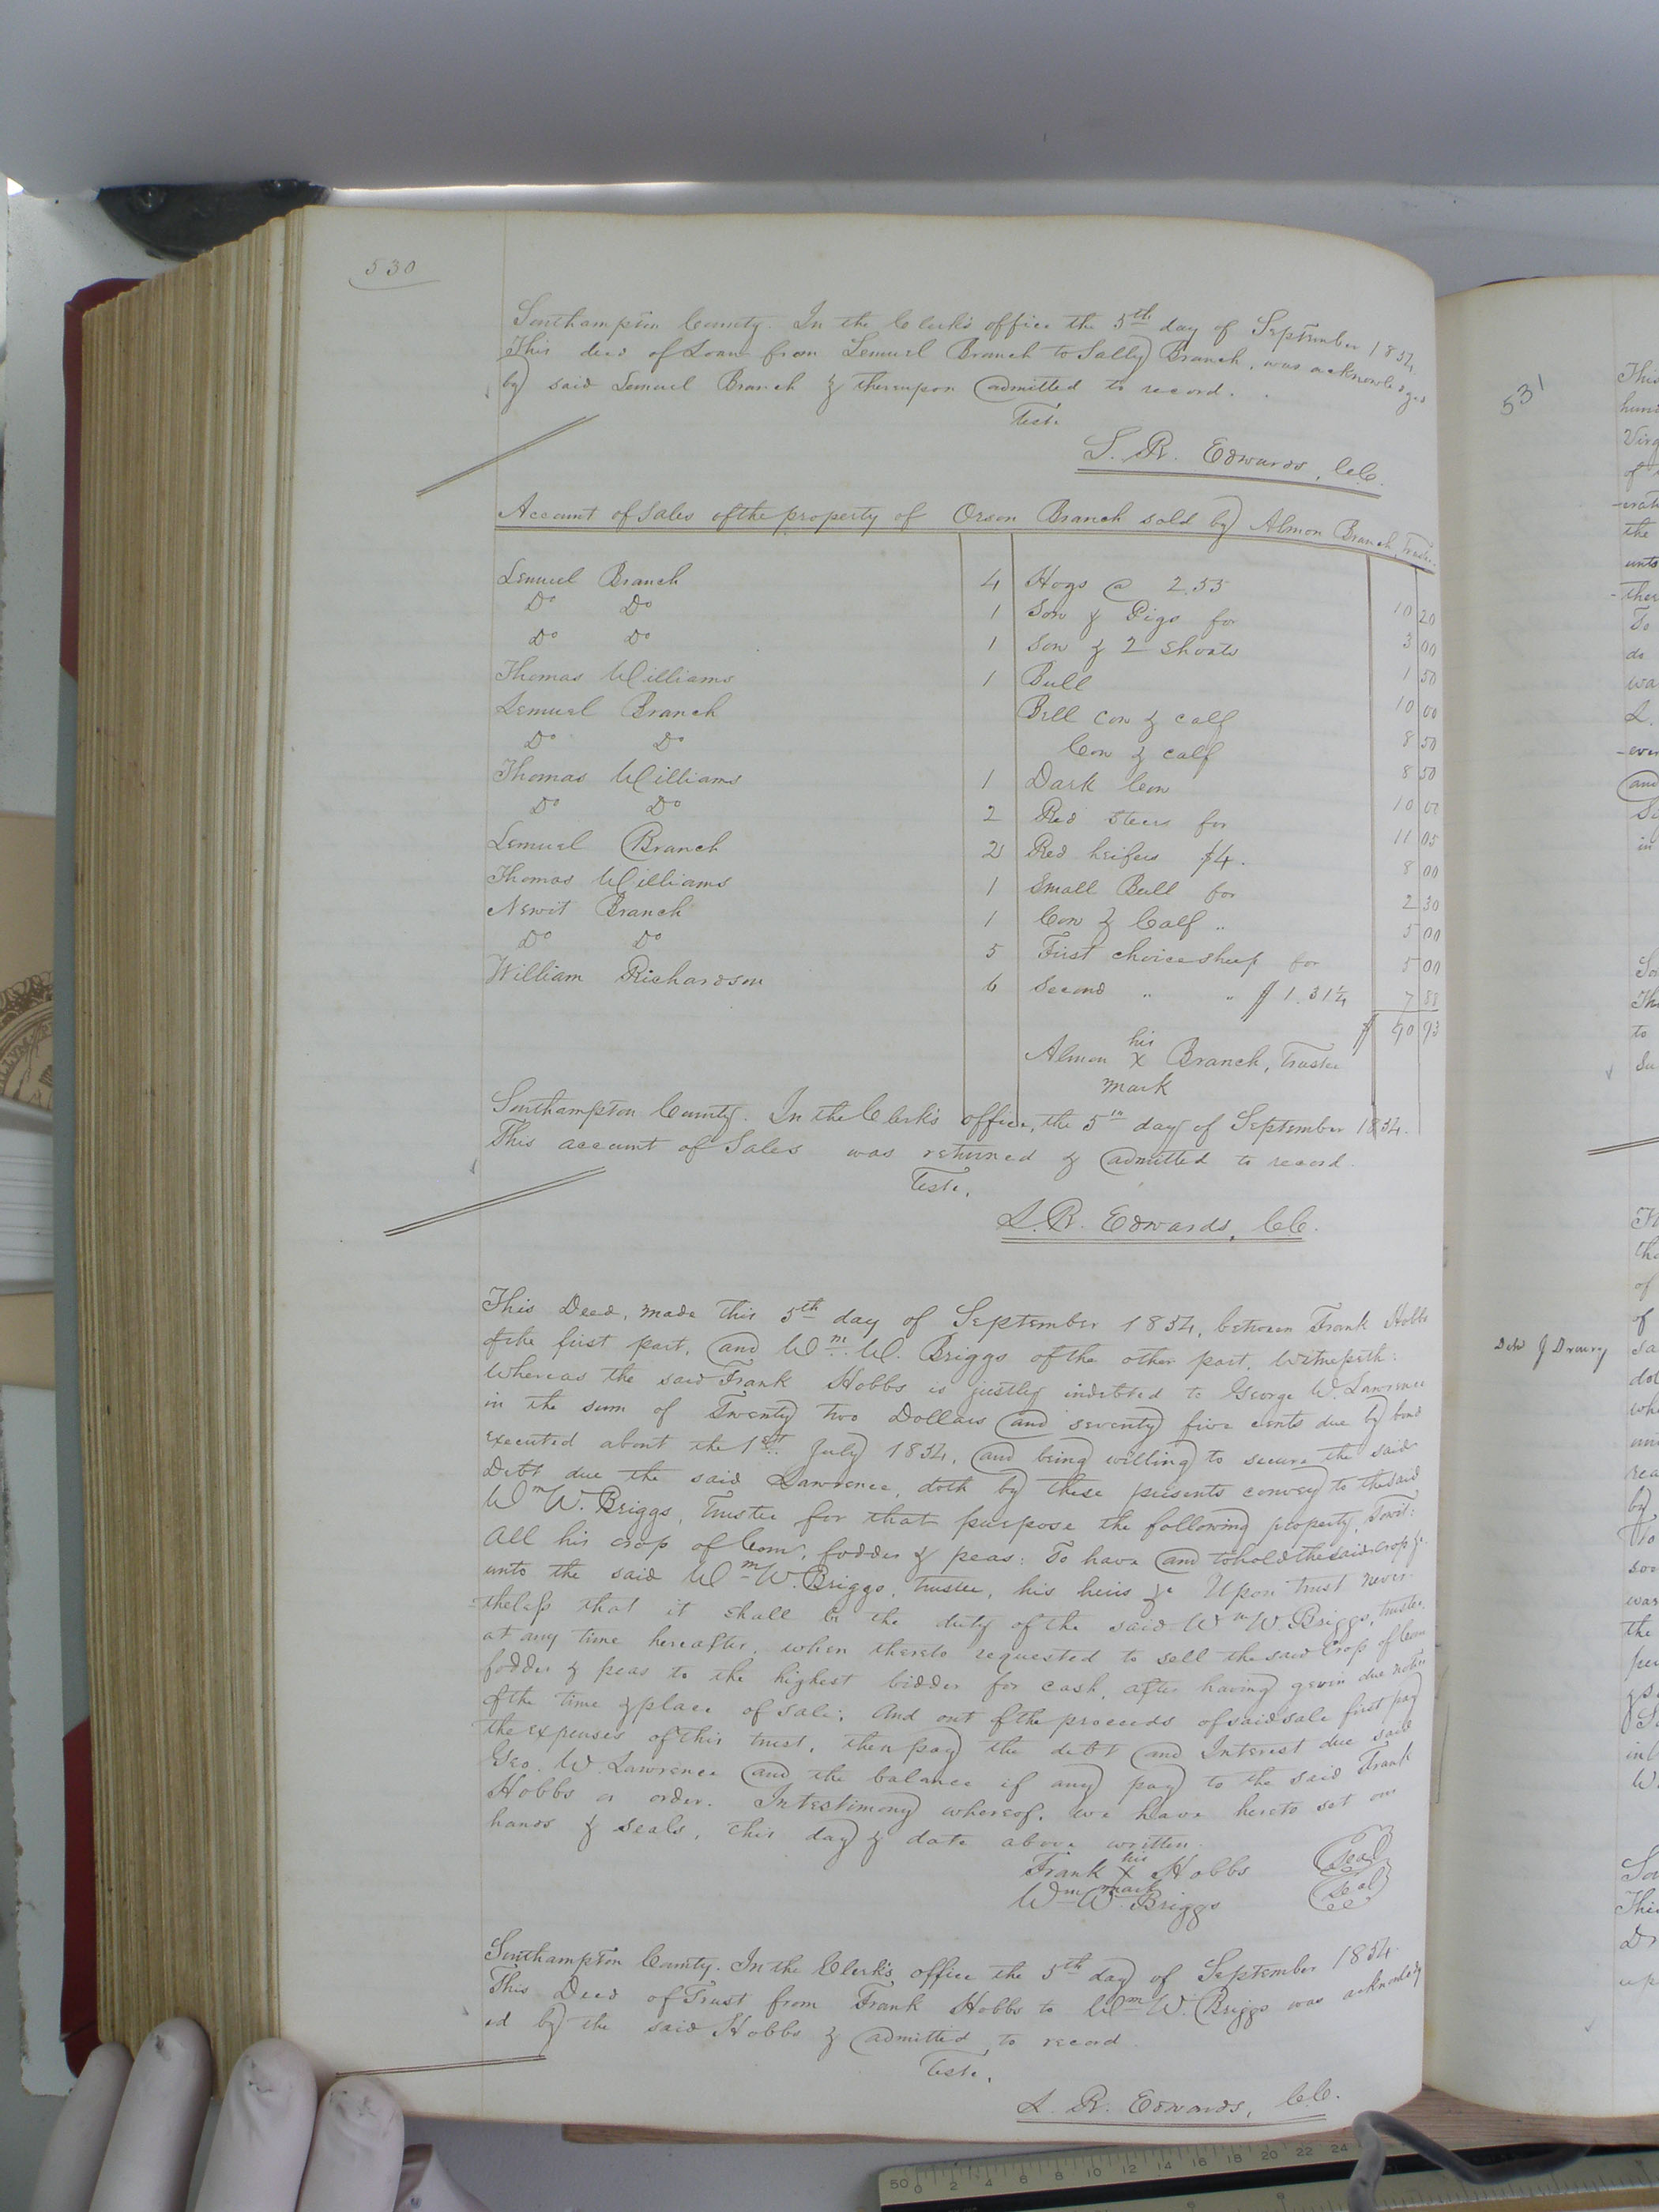 530
Southampton County. In the Clerk's office the 5th day of September 1854
This deed of Loan from Lemuel Branch to Sally Branch, was acknowledged
by said Lemuel Branch & thereupon admitted to record.
Teste.
L. R. Edwards, C.C.
Account of Sales of the property of Orson Branch sold by Almon Branch, Trustee
Lemuel Branch 4 Hogs @ 2.55 10 20
Do Do 1 Sow & Pigs for 3 00
Do Do 1 Sow & 2 Shoats 1 50
Thomas Williams 1 Bull 10 00
Lemuel Branch Bell Cow & calf 8 50
Do Do Cow & calf 8 50
Thomas Williams 1 Dark Cow 10 00
Do Do 2 Red Steers for 11 05
Lemuel Branch 2 Red heifers $4. 8 00
Thomas Williams 1 Small Bull for 2 30
Newit Branch 1 Cow & Calf " 5 00
Do Do 5 First choice sheep for 5 00
William Richardson 6 Second " " $1.31¼ 7 88
$ 90 93
his
Almon X Branch, Trustee
mark
Southampton County. In the Clerk's office, the 5th day of September 1854.
This account of Sales was returned & admitted to record.
Teste.
L. R. Edwards, C.C.
This Deed, made this 5th day of September 1854, between Frank Hobbs
of the first part, and Wm. W. Briggs of the other part, Witnesseth:
Whereas the said Frank Hobbs is justly indebted to George W. Lawrence
in the sum of Twenty two Dollars and seventy five cents due by bond
executed about the 1st July 1854, and being willing to secure the said
Debt due the said Lawrence, doth by these presents convey to the said
Wm W. Briggs, Trustee for that purpose the following property, Towit:
All his crop of Corn, fodder & peas: To have and to hold the said crop &c.
unto the said Wm W. Briggs, trustee, his heirs &c Upon trust never-
-theless that it shall be the duty of the said Wm W. Briggs, trustee,
at any time hereafter, when thereto requested to sell the said Crop of Corn
fodder & peas to the highest bidder for cash, after having given due notice
of the time & place of sale; And out of the proceeds of said sale first pay
the expenses of this trust, then pay the debt and Interest due said
Geo. W. Lawrence and the balance if any pay to the said Frank
Hobbs or order. In testimony whereof, we have hereto set our
hands & seals, this day & date above written.
his
Frank X Hobbs Seal
mark
Wm W. Briggs Seal
Southampton County. In the Clerk's office the 5th day of September 1854.
This Deed of Trust from Frank Hobbs to Wm W. Briggs was acknowledg
ed by the said Hobbs & admitted to record.
Teste.
L. R. Edwards, C.C.
531